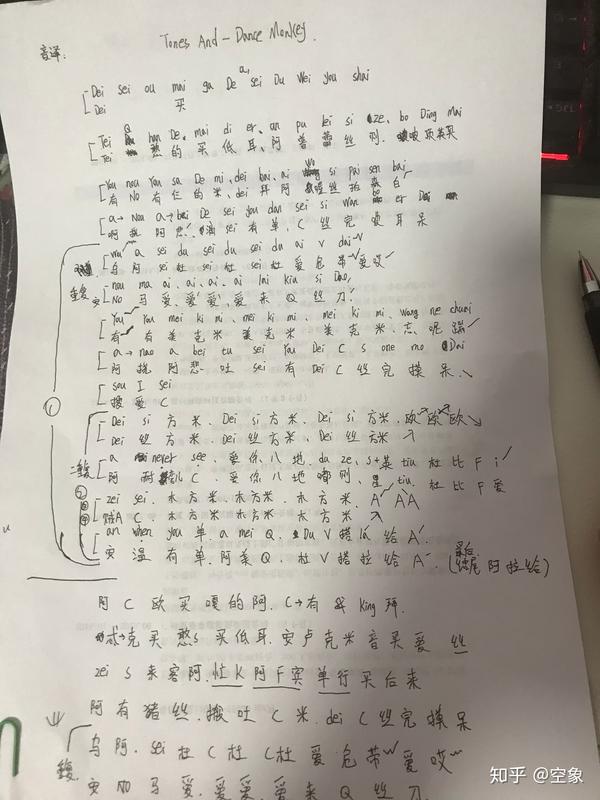 音译:
Tones And - Dance Monkey.
Dei sei ou mai ga De a, sei Du Wei you shai
Dei 买
Tei han De, mai di er, an pu lei si ze, bo Ding Mai
Tei 憨 的 买 低 耳, 阿 普 蕾 丝 则.
You nou You sa De mi, dei bai, ai si pai sen bai
有 NO 有 的 米, dei 拜 阿 丝 拍 白
a→ nou a→ bei De sei you dan sei si Wan er Dei
啊 挠 阿 悲 滴 sei 有 单, C 丝 完 耳 呆
wu a sei du sei du sei du ai v dai
乌 阿 sei 杜 sei 杜 sei 杜 爱 危 带 爱 哎
重复
nou ma ai, ai, ai, ai lai kiu si Dao,
安 NO 马 爱, 爱, 爱, 爱 来 Q 丝 刀
You You mei ki mi, mei ki mi, mei ki mi, wang ne chuai
有 有 美 克 米 美 克 米 美 克 米, 忘 呢 踹
a→ nao a bei tu sei You Dei C s one mo Dai
阿 挠 阿 悲 吐 sei 有 Dei C 丝 完 摸 呆
sou I sei
搜 爱 C
①
Dei si 方 米, Dei si 方 米, Dei si 方 米, 欧 欧 欧
Dei 丝 方 米, Dei 丝 方 米, Dei 丝 方 米
a never see, 爱 你 八 地, du ze, s+ tiu 杜 比 F i
阿 C, 爱 你 八 地 嘟 则, 星 tiu, 杜 比 F 爱
zei sei, 木 方 米, 木 方 米, 木 方 米, A A A
贼A C, 木 方 米 木 方 米 木 方 米
an when you 单 a mei Q, Du V 搭 瓜 给 A
安 温 有 单, 阿 美 Q, 杜 V 搭 拉 给 A (最后 结尾 阿 拉 给)
阿 C 欧 买 嘎 的 阿, C→ 有 king 拜,
忒→ 克 买 憨s 买 低 耳, 安 卢 克 米 音 买 爱 丝
zei s 来 客 阿, 忙 K 阿 F 宾 单 行 买 后 来
阿 有 猪 丝, 搬 吐 C 米, dei C 丝 完 摸 呆
乌 阿, sei 杜 C 杜 C 杜 爱 危 带 爱 哎
重复
安 NO 马 爱, 爱 爱, 爱 来 Q 丝 刀
知乎 @空象